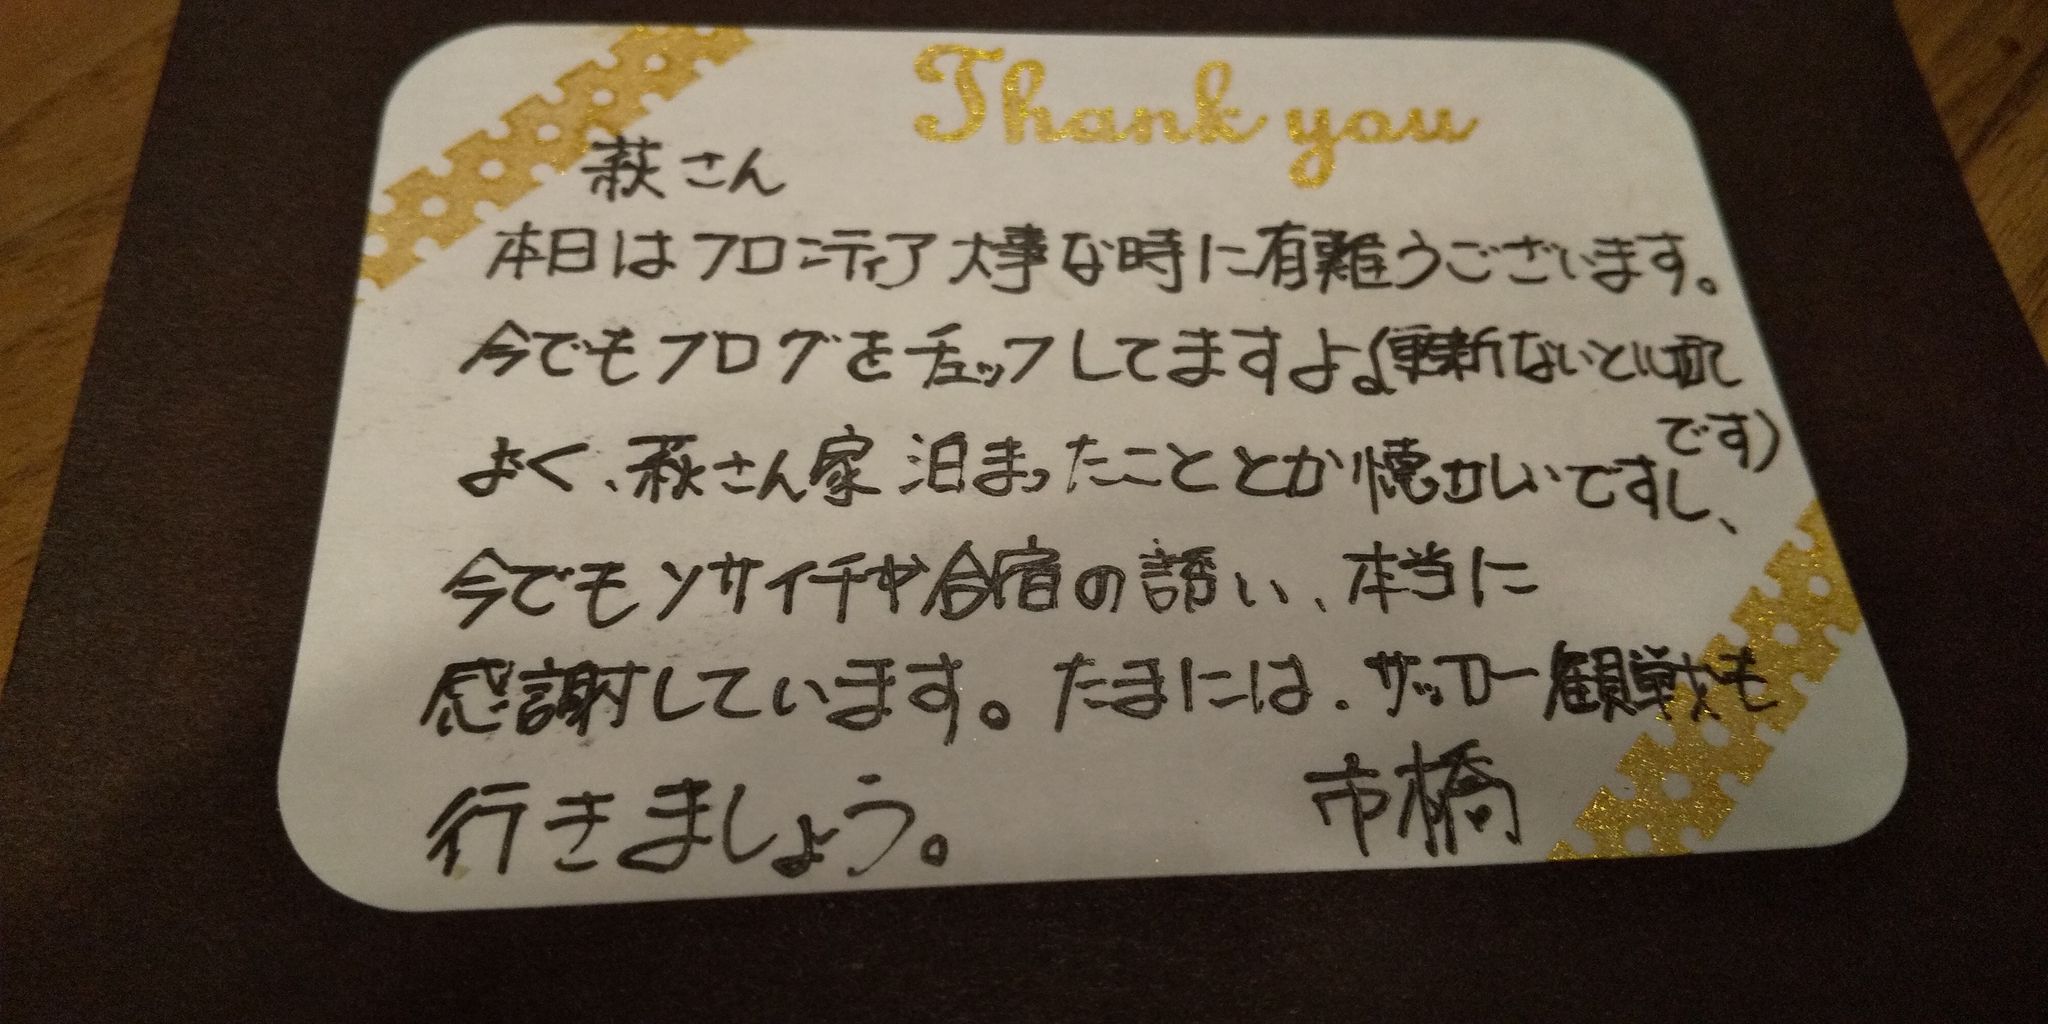 Thank you
萩さん
本日はフロンティア大事な時に有難うございます。
今でもブログをチェックしてますよ(更新ないと心配
です)
よく、萩さん家泊まったこととか懐かしいですし、
今でもソサイチや合宿の誘い、本当に
感謝しています。たまには、サッカー観戦も
行きましょう。
市橋